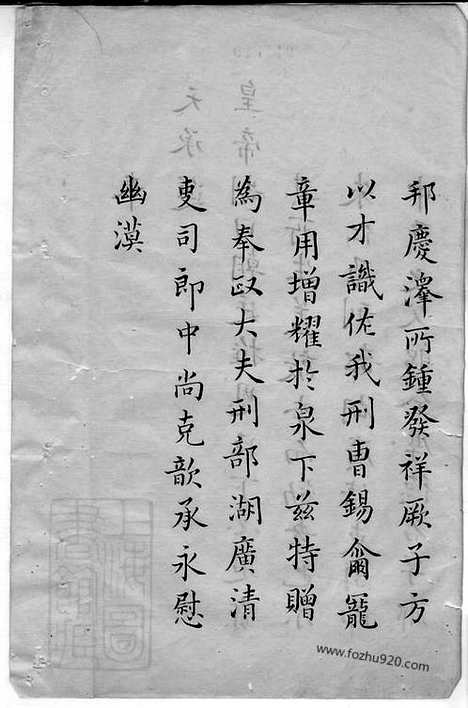 邦慶澤所鍾發祥厥子方
以才識佐我刑曹錫爾寵
章用增耀扵泉下茲特贈
為奉政大夫刑部湖廣清
吏司郎中尚克歆承永慰
幽漠
www.fozhu920.com